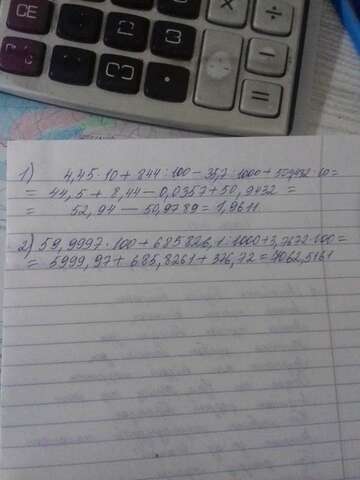 CE
3
2
×
÷
−
=
1) 4,45·10 + 844:100 − 35,7:1000 + 50,9432·10 =
= 44,5 + 8,44 − 0,0357 + 50,9432 =
= 52,94 — 50,9789 = 1,9611.
2) 59,9997·100 + 685826,1:1000 + 3,7672·100 =
= 5999,97 + 685,8261 + 376,72 = 7062,5161